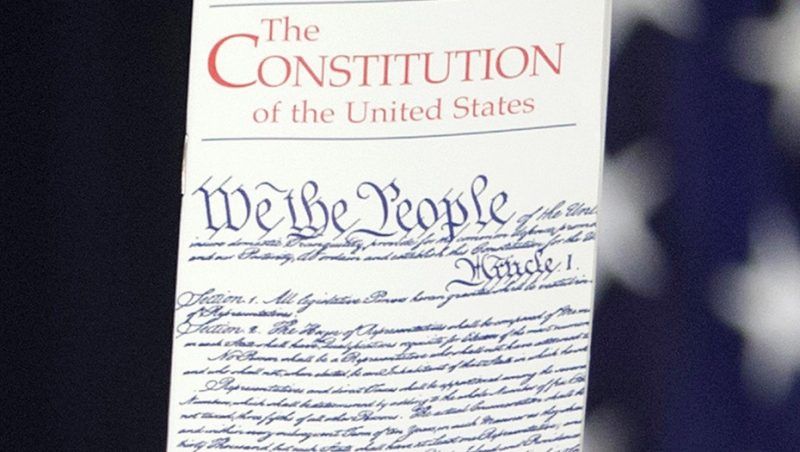 The
CONSTITUTION
of the United States
We the People of the
insure domestic Tranquility, provide for the common defence,
and our Posterity, do ordain and establish this Constitution for the
Article I.
Section 1. All legislative Powers herein granted shall be vested in
of Representatives.
Section 2. The House of Representatives shall be composed of
in each State shall have Qualifications requisite for Electors of the most
No Person shall be a Representative who shall not have attained
and who shall not, when elected, be an Inhabitant of that State in which
Representatives and direct Taxes shall be apportioned among the
Number, which shall be determined by adding to the whole Number of free
not taxed, three fifths of all other Persons. The actual Enumeration shall
and within every subsequent Term of ten Years, in such Manner as they
thirty Thousand, but each State shall have at Least one Representative;